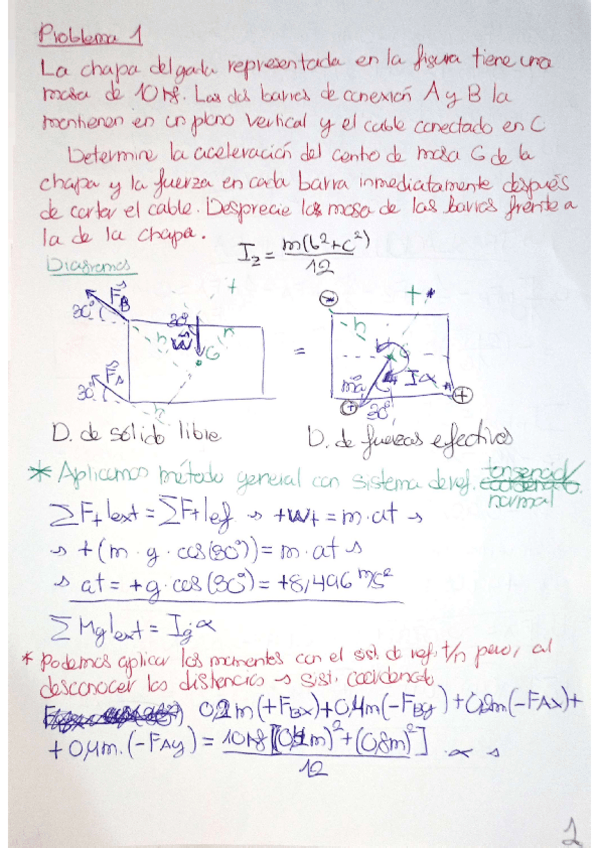 Problema 1
La chapa delgada representada en la figura tiene una
masa de 10 kg. Las dos barras de conexión A y B la
mantienen en un plano vertical y el cable conectado en C
Determine la aceleración del centro de masa G de la
chapa y la fuerza en cada barra inmediatamente después
de cortar el cable. Desprecie las masa de las barras frente a
la de la chapa.
I₂ = m(b²+c²)/12
Diagramas
F_B
t
30°
30°
W
n
h
G
F_A
30°
h
=
t
h
G
Iα
ma
30°
D. de sólido libre
D. de fuerzas efectivas
* Aplicamos método general con sistema de ref. tangencial
normal
ΣF_t|ext = ΣF_t|ef → +W_t = m·a_t →
→ +(m·g·cos(30°)) = m·a_t →
→ a_t = +g·cos(30°) = +8,496 m/s²
ΣM_g|ext = I_g α
* Podemos aplicar los momentos con el sist. de ref. t/n pero, al
desconocer las distancias → sist. coordenad.
0,2m(+F_Bx)+0,4m(-F_By)+0,2m(-F_Ax)+
+0,4m·(-F_Ay) = 10kg[(0,4m)²+(0,8m)²]/12 ·α →
1